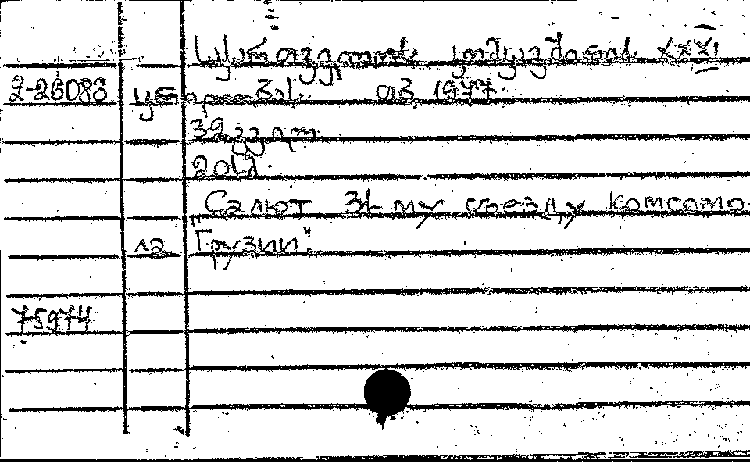 საქართველოს კომკავშირის XXXI
2-26083 ყრილობას. თბ. 1977.
32გვ.
20სმ.
"Салют 31-му съезду комсомо-
ла Грузии".
75974